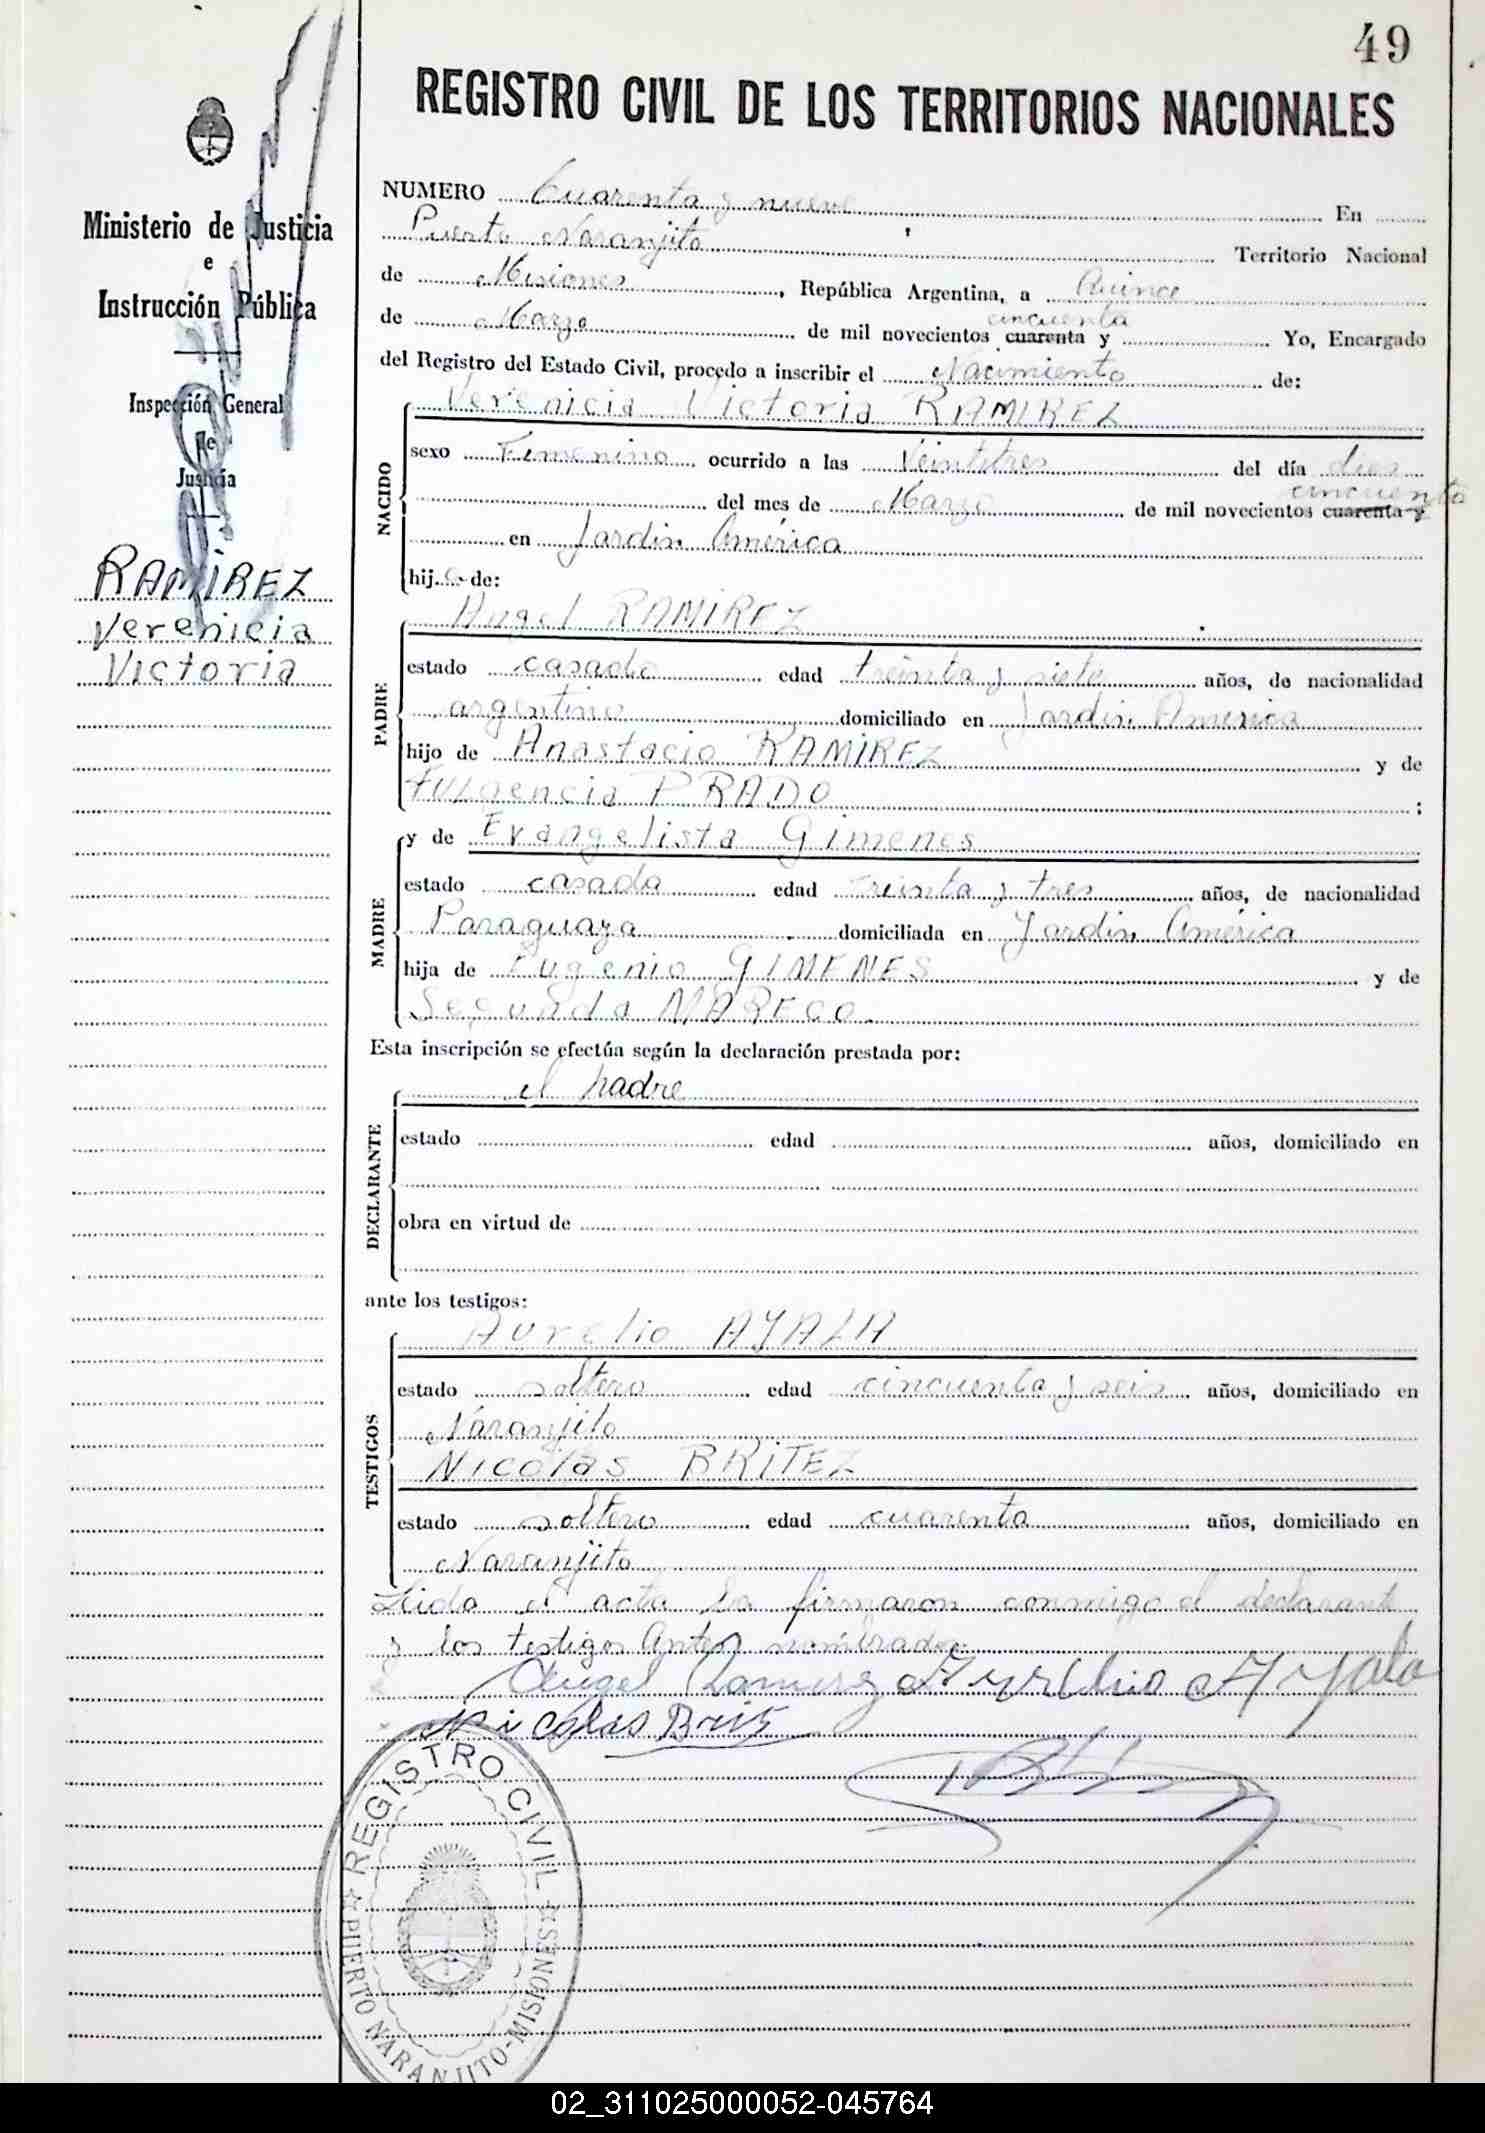 49
REGISTRO CIVIL DE LOS TERRITORIOS NACIONALES
Ministerio de Justicia
e
Instrucción Pública
Inspección General
de
Justicia
RAMIREZ
Verenicia
Victoria
NUMERO Cuarenta y nueve En
Puerto Naranjito Territorio Nacional
de Misiones, República Argentina, a Quince
cincuenta
de Marzo de mil novecientos cuarenta y Yo, Encargado
del Registro del Estado Civil, procedo a inscribir el Nacimiento de:
NACIDO
Verenicia Victoria RAMIREZ
sexo Femenino ocurrido a las Veintitres del día dies
cincuenta
del mes de Marzo de mil novecientos cuarenta y
en Jardin América
hija de:
PADRE
Angel RAMIREZ
estado casado edad treinta y siete años, de nacionalidad
argentino domiciliado en Jardin America
hijo de Anastacio RAMIREZ y de
Fulgencia PRADO ;
MADRE
y de Evangelista Gimenes
estado casada edad treinta y tres años, de nacionalidad
Paraguaya domiciliada en Jardin América
hija de Eugenio GIMENES y de
Segunda MARECO.
Esta inscripción se efectúa según la declaración prestada por:
DECLARANTE
el padre
estado edad años, domiciliado en
obra en virtud de
ante los testigos:
TESTIGOS
Aurelio AYALA
estado soltero edad cincuenta y seis años, domiciliado en
Naranjito
Nicolas BRITEZ
estado soltero edad cuarenta años, domiciliado en
Naranjito
Leida el acta la firmaron conmigo el declarante
y los testigos antes nombrados.
Angel Ramirez Aurelio Ayala
Nicolas Brits
REGISTRO CIVIL
PUERTO NARANJITO-MISIONES
02_311025000052-045764